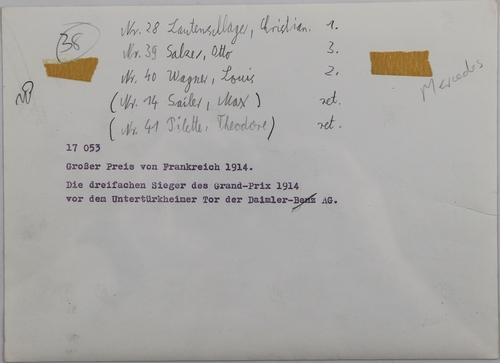 38
Nr. 28 Lautenschlager, Christian. 1.
Nr. 39 Salzer, Otto 3.
Nr. 40 Wagner, Louis 2.
Mercedes
(Nr. 14 Sailer, Max) ret.
(Nr. 41 Pilette, Theodore) ret.
17 053
Großer Preis von Frankreich 1914.
Die dreifachen Sieger des Grand-Prix 1914
vor dem Untertürkheimer Tor der Daimler-Benz AG.